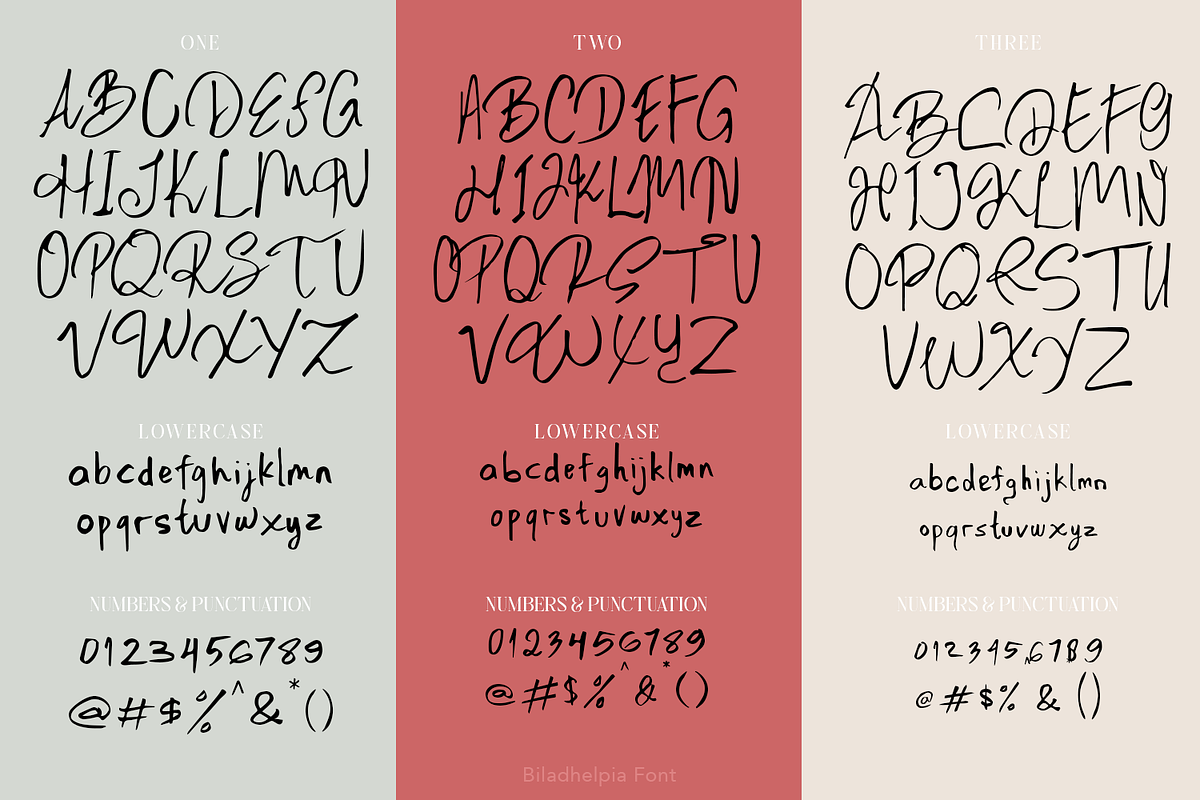 ONE
ABCDEFG
HIJKLMN
OPQRSTU
VWXYZ
LOWERCASE
abcdefghijklmn
opqrstuvwxyz
NUMBERS & PUNCTUATION
0123456789
@#$%^&*()
TWO
ABCDEFG
HIJKLMN
OPQRSTU
VWXYZ
LOWERCASE
abcdefghijklmn
opqrstuvwxyz
NUMBERS & PUNCTUATION
0123456789
@#$%^&*()
THREE
ABCDEFG
HIJKLMN
OPQRSTU
VWXYZ
LOWERCASE
abcdefghijklmn
opqrstuvwxyz
NUMBERS & PUNCTUATION
012345^6789
@#$%&()
Biladhelpia Font